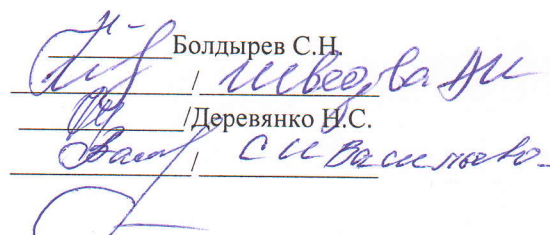 Болдырев С.Н.
/ Шведова АИ
/Деревянко Н.С.
/ С И Васильева